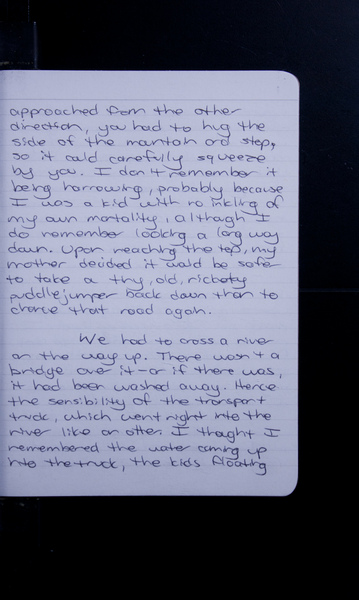 approached from the other
direction, you had to hug the
side of the mountain and stop,
so it could carefully squeeze
by you. I don't remember it
being harrowing, probably because
I was a kid with no inkling of
my own mortality, although I
do remember looking a long way
down. Upon reaching the top, my
mother decided it would be safer
to take a tiny, old, rickety
puddlejumper back down than to
chance that road again.
We had to cross a river
on the way up. There wasn't a
bridge over it - or if there was,
it had been washed away. Hence
the sensibility of the transport
truck, which went right into the
river like an otter. I thought I
remembered the water coming up
into the truck, the kids floating